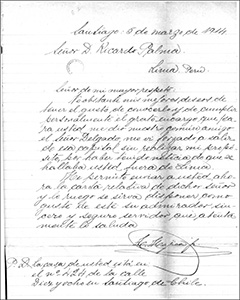 Santiago 6 de marzo de 1914.
Señor D. Ricardo Palma
Lima Perú.
Señor de mi mayor respeto:
No obstante mis mejores deseos de
tener el gusto de conocerlo y de cumplir
personalmente el grato encargo que pa-
ra usted me dió nuestro común amigo
el Señor Delgado, me vi obligado a salir
de esa capital sin realizar mi propó-
sito, por haber tenido noticia de que se
hallaba usted fuera de Lima.
Me permito enviar a usted aho-
ra la carta relativa de dicho señor
y le ruego se sirva disponer como
guste de este su admirador sin-
cero y seguro servidor que atenta-
mente lo saluda.
P.D. La casa de usted está en
el nº 424 de la calle
Dieziocho en Santiago de Chile.